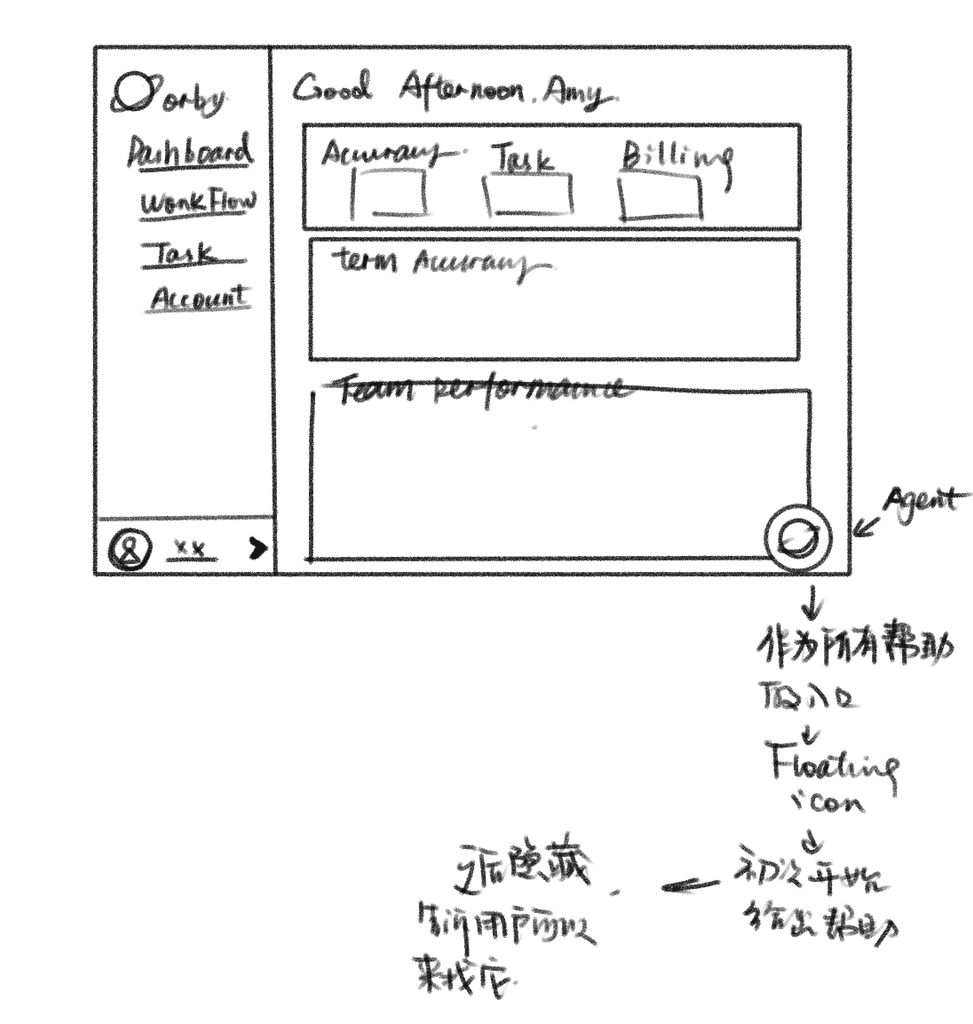 orby
Dashboard
WorkFlow
Task
Account
xx
Good Afternoon, Amy.
Accuracy
Task
Billing
term Accuracy
Team performance
Agent
作为所有帮助
入口
Floating
icon
初次开始
给出帮助
后隐藏
告诉用户可以
来找它.